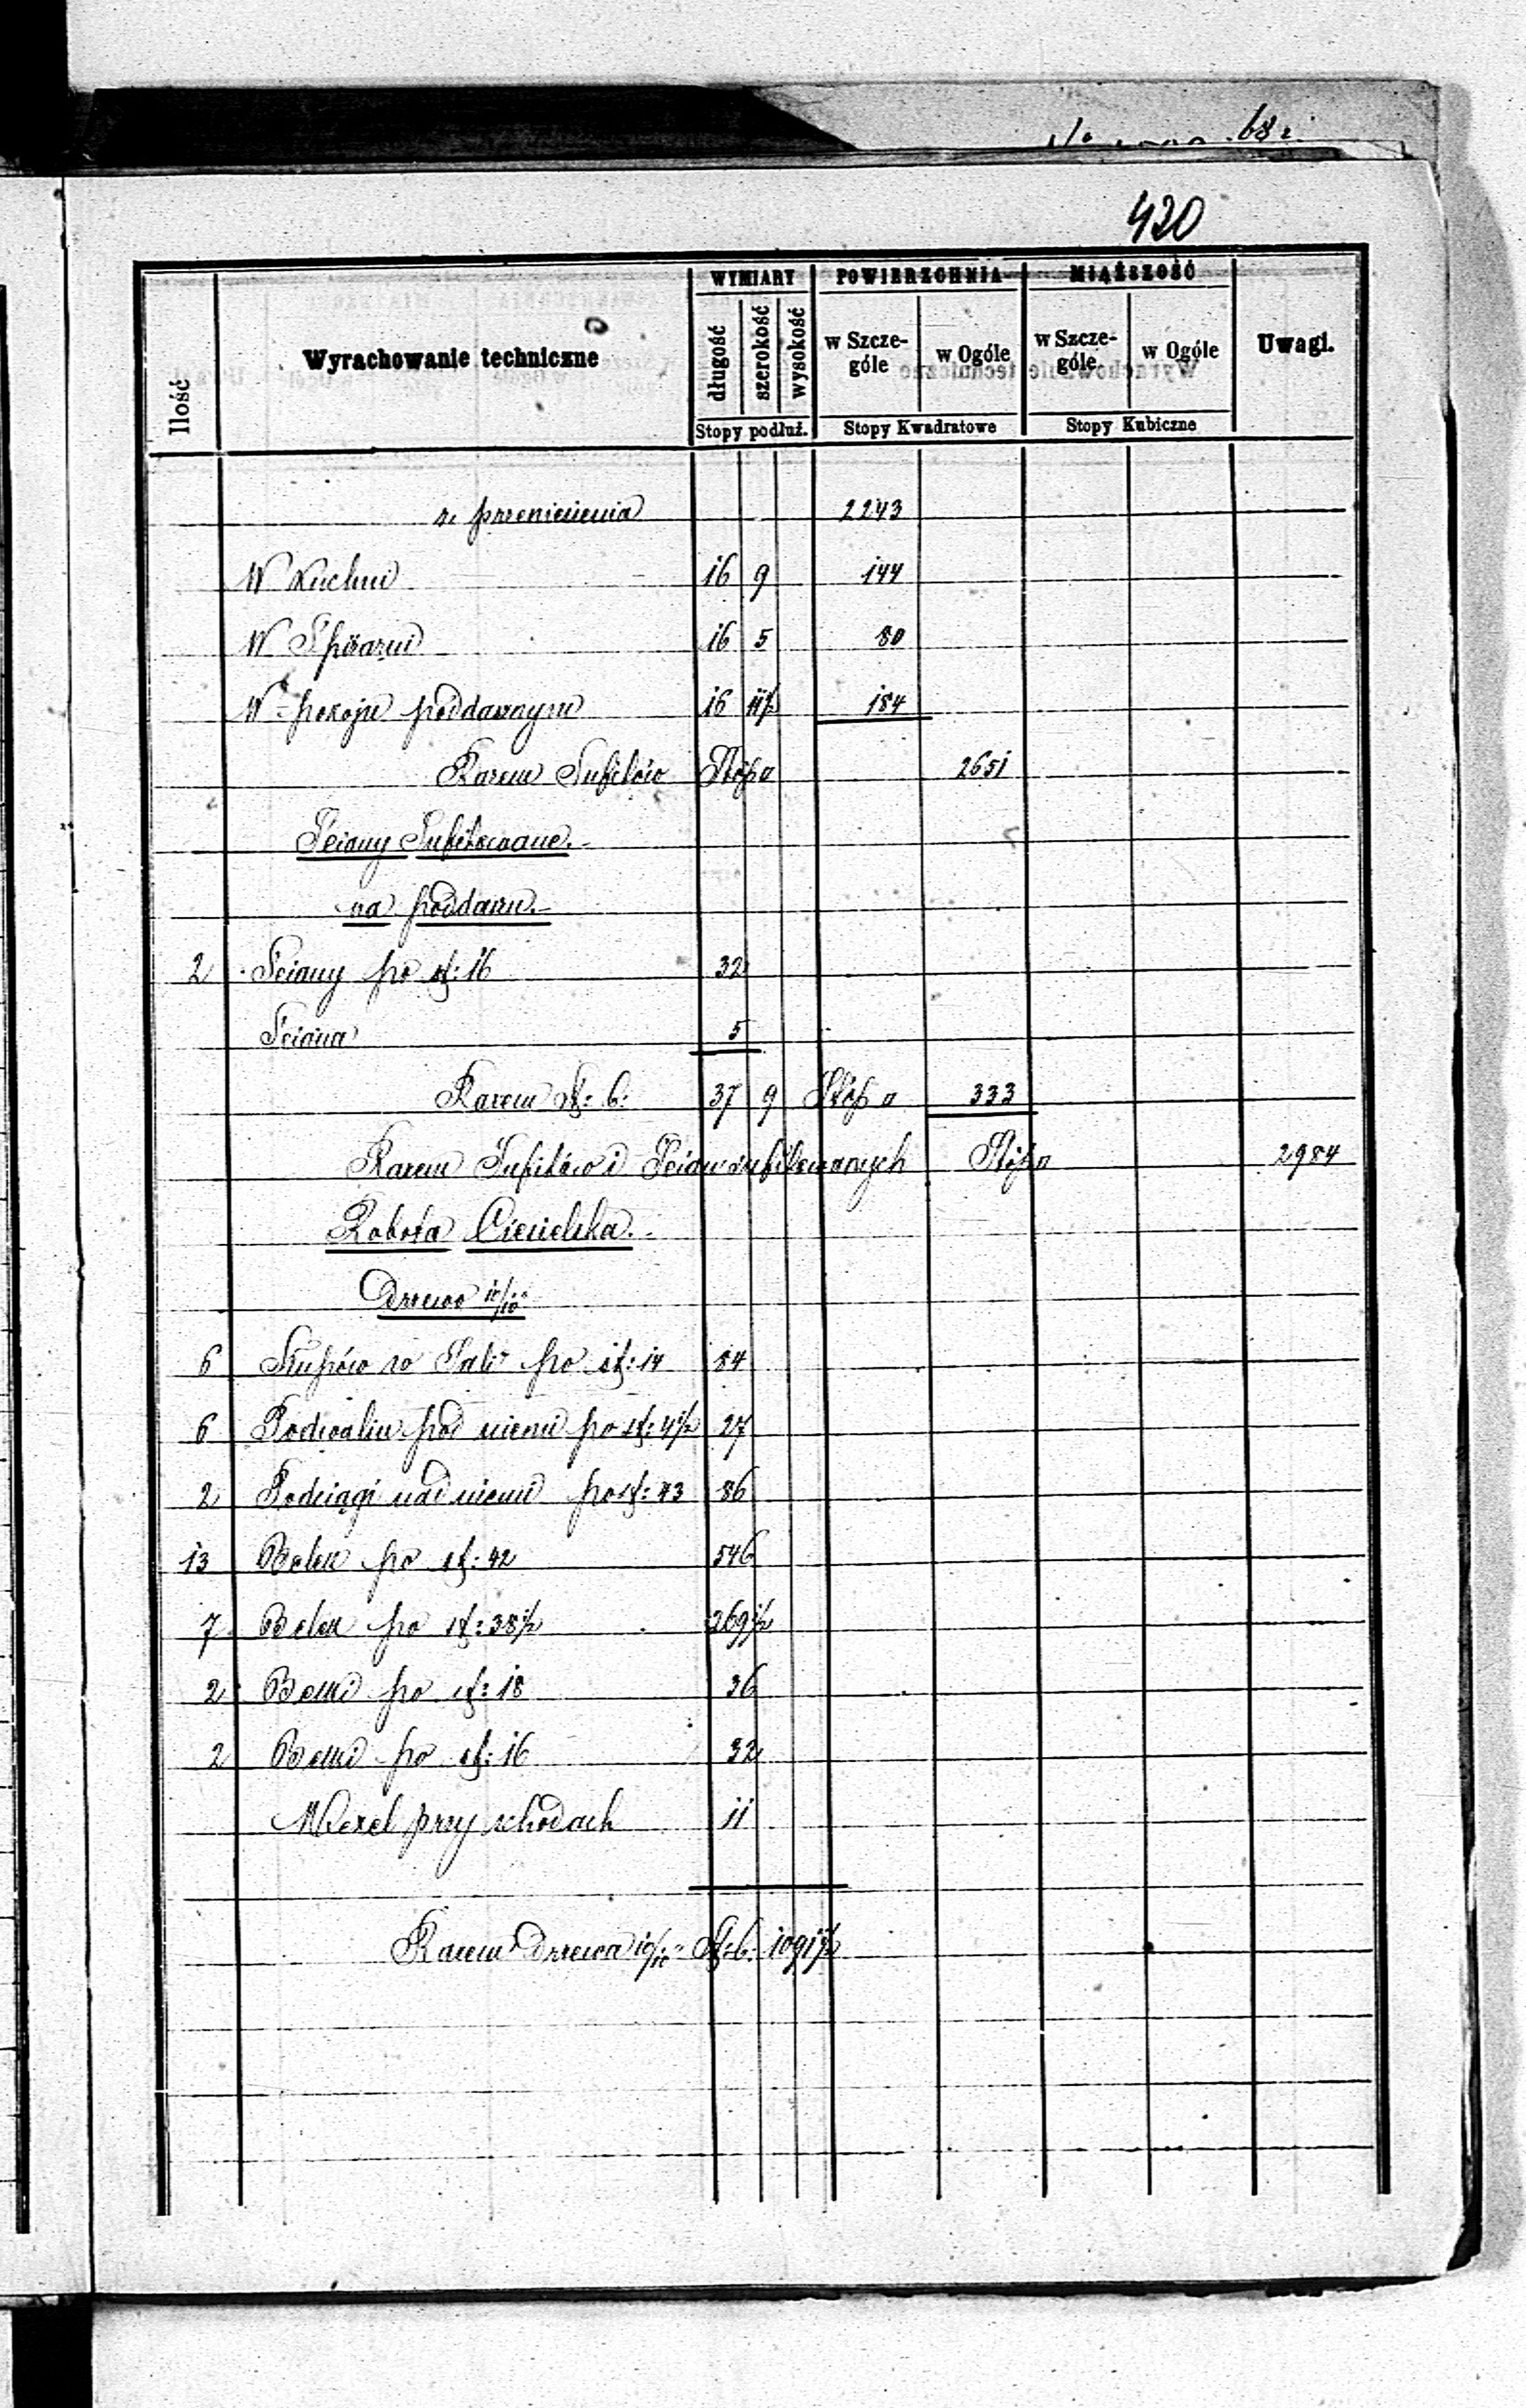 420
WYMIARY POWIERZCHNIA MIĄŻSZOŚĆ
Ilość Wyrachowanie techniczne długość szerokość wysokość w Szczególe w Ogóle w Szczególe w Ogóle Uwagi.
Stopy podłuż. Stopy Kwadratowe Stopy Kubiczne
z przeniesienia 2243
W Kuchni 16 9 144
W Spiżarni 16 5 80
W pokoju poddasznym 16 11½ 184
Razem Sufitów Stóp □ 2651
Ściany Sufitowane.
na poddaszu.
2 Ściany po st: 16 32
Ściana 5
Razem St: b: 37 9 Stóp □ 333
Razem Sufitów i Ścian sufitowanych Stóp □ 2984
Robota Ciesielska.
Drzewo 10/10"
6 Słupów w Sali po st: 14 84
6 Podwalin pod niemi po st: 4½ 27
2 Podciągi nad niemi po st: 43 86
13 Belek po st: 42 546
7 Belek po st: 38½ 269½
2 Belki po st: 18 36
2 Belki po st: 16 32
Wexel przy schodach 11
Razem drzewa 10/10" St: b: 1091½